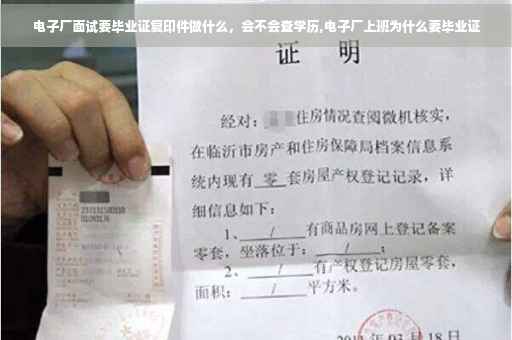 电子厂面试要毕业证复印件做什么，会不会查学历,电子厂上班为什么要毕业证
证 明
经对：住房情况查阅微机核实，
在临沂市房产和住房保障局档案信息系
统内现有 零 套房屋产权登记记录，详
细信息如下：
1、 / 有商品房网上登记备案
零套，坐落位于： / ；
2、 / 有产权登记房屋零套，
面积： / 平方米。
03月18日